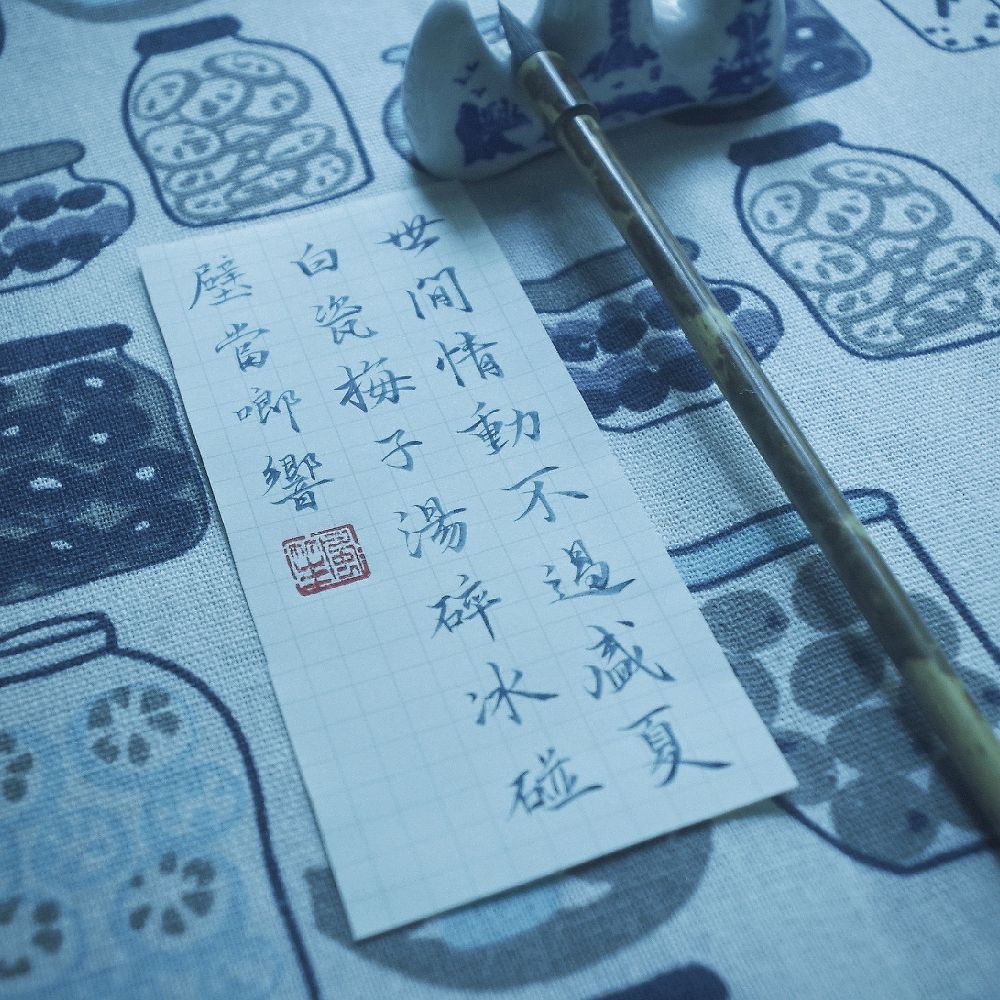 世间情動不過盛夏
白瓷梅子湯碎冰碰
壁當啷響